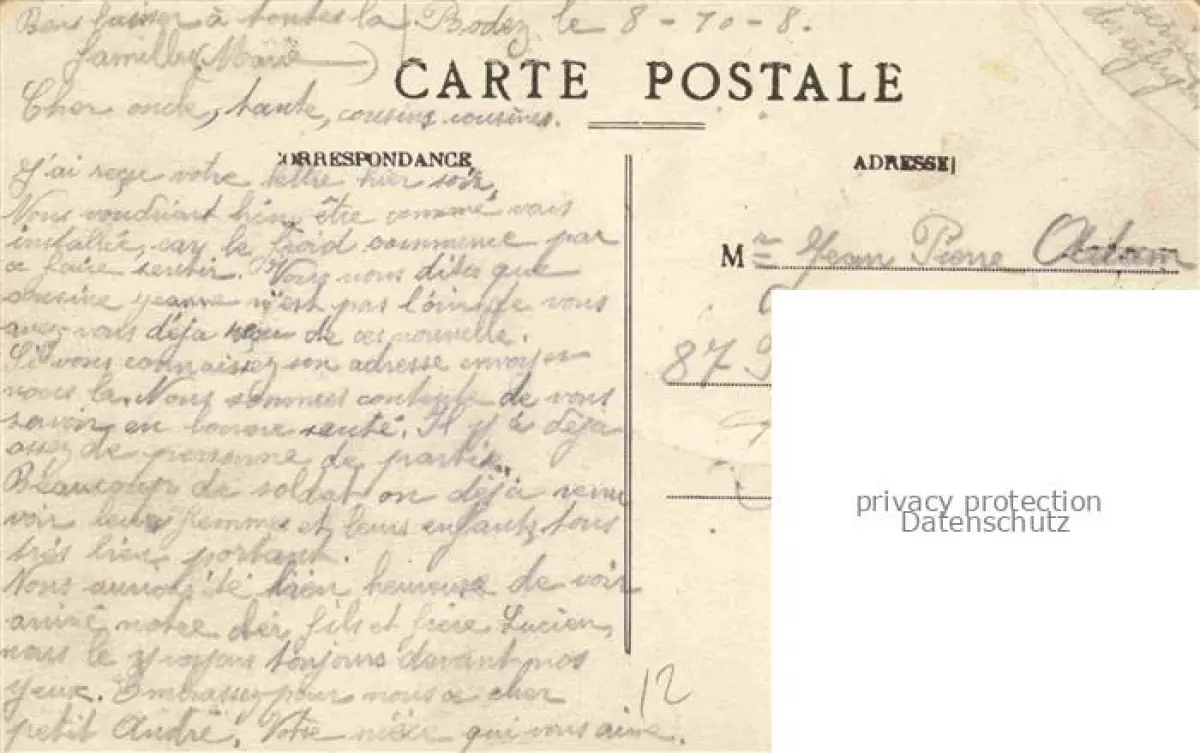 Bons baisers à toutes la
famille (Marie)
Rodez le 8-10-8.
CARTE POSTALE
Cher oncle, tante, cousins cousines.
CORRESPONDANCE
J'ai reçu votre lettre hier soir,
Nous voudriont bien être comme vous
installée, car le froid commence par
a faire sentir. Vous nous dites que
cousine Jeanne n'est pas loin de vous
avez vous déja reçu de ces nouvelle.
Si vous connaissez son adresse envoyer
nous la. Nous sommes contente de vous
savoir en bonne santé. Il y a déja
assez de personne de partie.
Beaucoup de soldat on déjà venu
voir leurs femmes et leurs enfants, tous
très bien portant.
Nous aurions été bien heureuse de voir
arrivé notre cher fils et frère Lucien,
nous le voyons toujours devant nos
yeux. Embrassez pour nous a cher
petit André. Votre nièce qui vous aime.
ADRESSE
Mr Jean Pierre Adam
87
12
privacy protection
Datenschutz